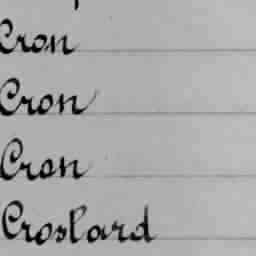 Cron
Cron
Cron
Crosland